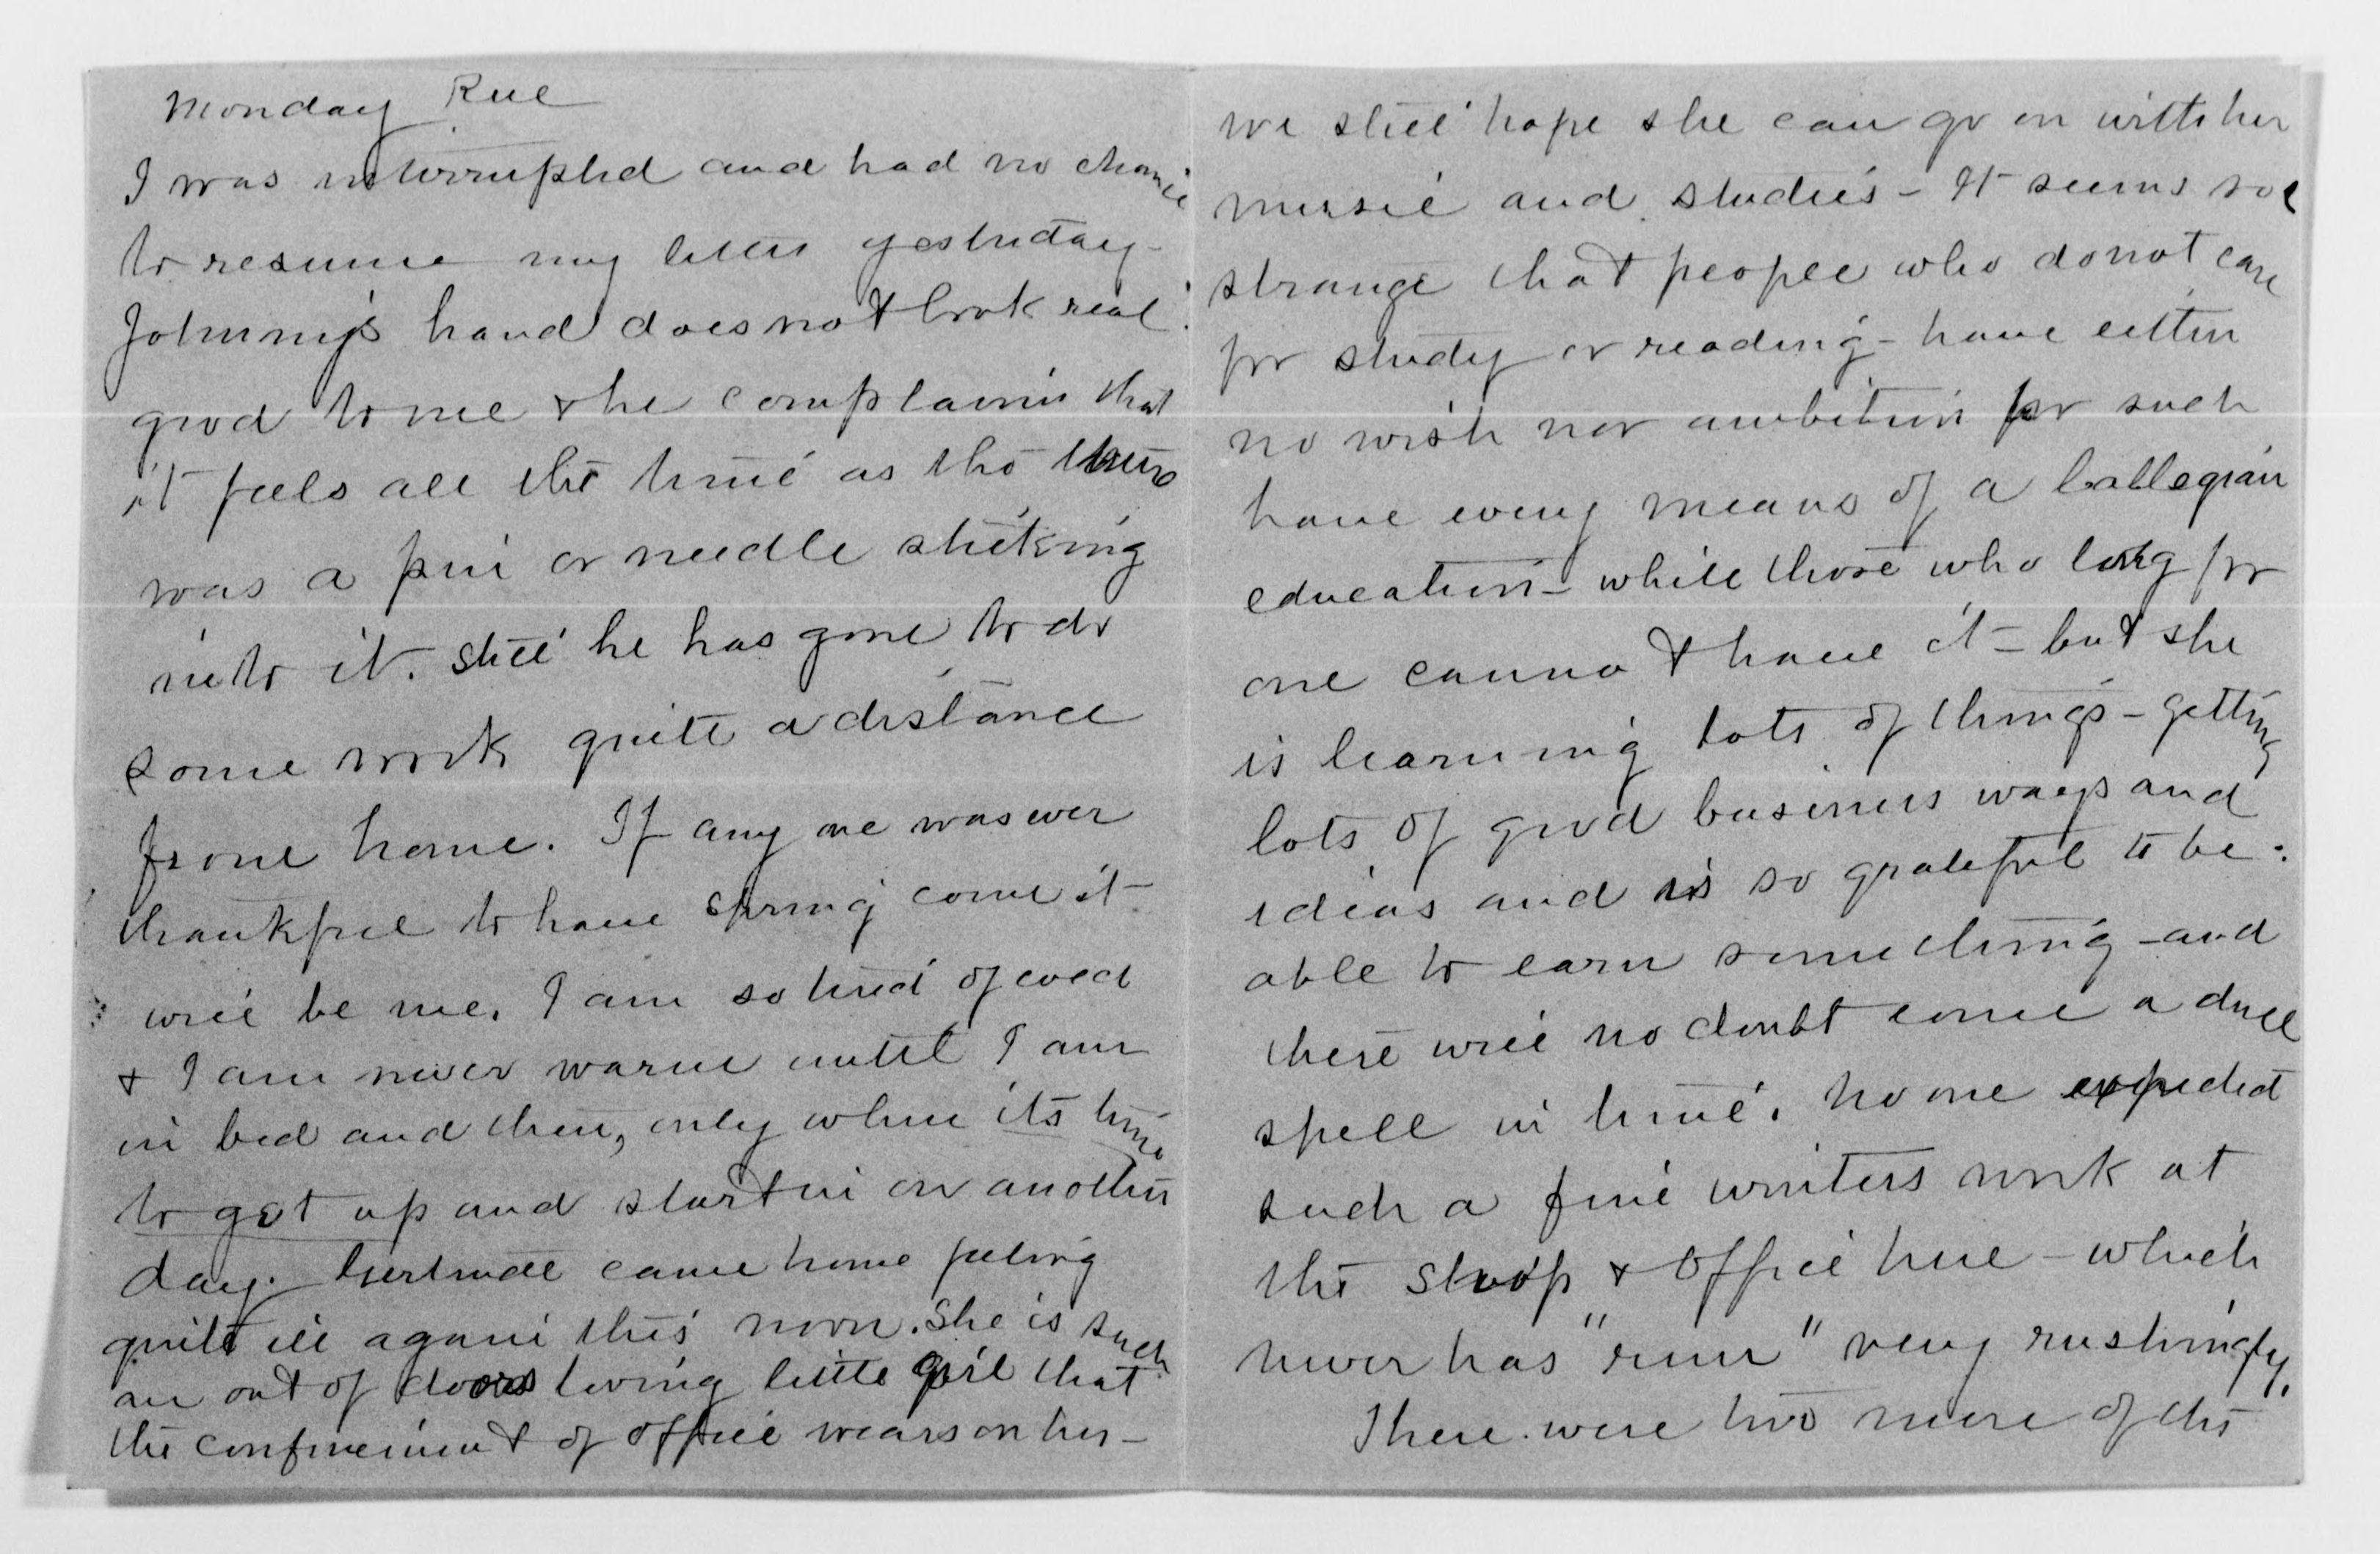 Monday Rue
I was interrupted and had no chance
to resume my letter yesterday-
Johnny's hand does not look real
good to me & he complains that
it feels all the time as tho there
was a pin or needle sticking
into it. Still he has gone to do
some work quite a distance
from home. If any one was ever
thankful to have spring come it
will be me. I am so tired of cold
& I am never warm until I am
in bed and then, only when its time
to get up and start in on another
day. Gertrude came home feeling
quite ill again this noon. She is such
an out of doors loving little girl that
the confinement of office wears on her-
we still hope she can go on with her
music and studies- It seems so
strange that people who do not care
for study or reading- have either
no wish nor ambition for such
have every means of a Collegian
education- while those who long for
one cannot have it- but she
is learning lots of things- getting
lots of good business ways and
ideas and is so grateful to be
able to earn something- and
there will no doubt come a dull
spell in time. No one expected
such a fine winters work at
the shop & office here- which
never has "run" very rushingly.
There were two more of the